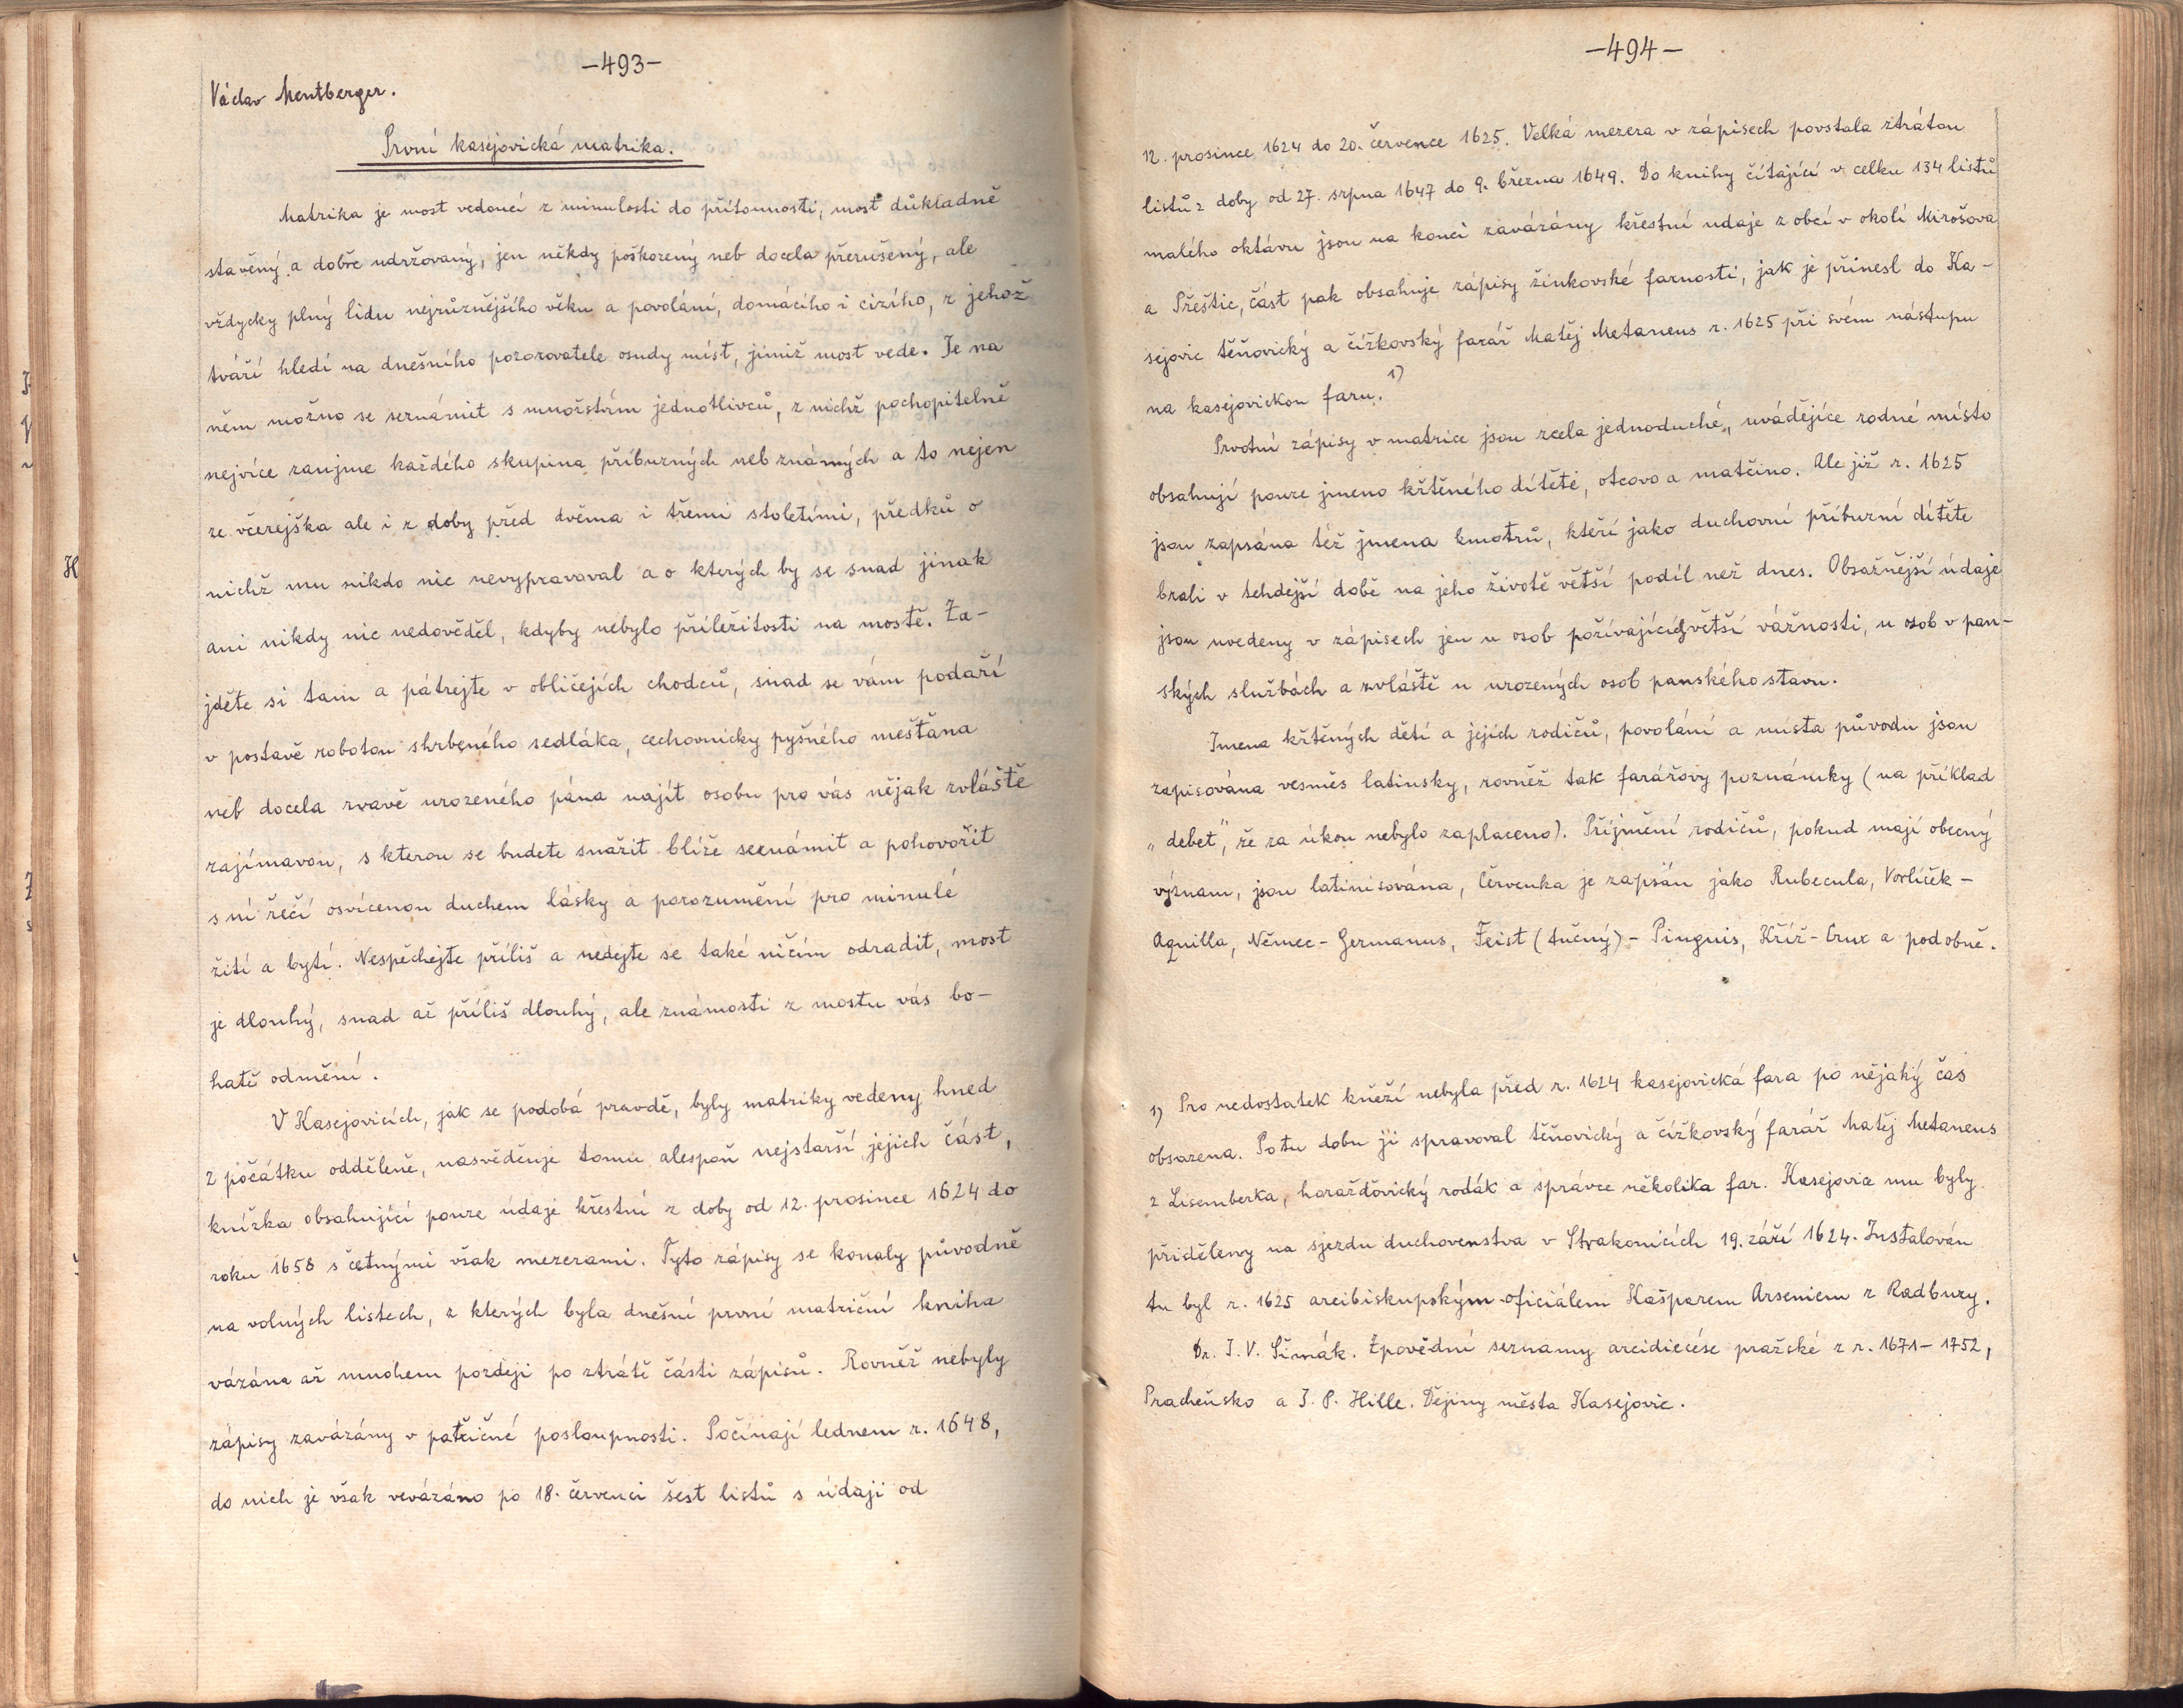 –493–
Václav Mentberger.
První kasejovická matrika.
Matrika je most vedoucí z minulosti do přítomnosti, most důkladně
stavěný a dobře udržovaný, jen někdy poškozený neb docela přerušený, ale
vždycky plný lidu nejrůznějšího věku a povolání, domácího i cizího, z jehož
tváří hledí na dnešního pozorovatele osudy míst, jimiž most vede. Je na
něm možno se seznámit s množstvím jednotlivců, z nichž pochopitelně
nejvíce zaujme každého skupina příbuzných neb známých a to nejen
ze včerejška ale i z doby před dvěma i třemi stoletími, předků o
nichž mu nikdo nic nevypravoval a o kterých by se snad jinak
ani nikdy nic nedověděl, kdyby nebylo příležitosti na mostě. Za-
jděte si tam a pátrejte v obličejích chodců, snad se vám podaří
v postavě robotou shrbeného sedláka, cechovnicky pyšného měšťana
neb docela zvavě urozeného pána najít osobu pro vás nějak zvláště
zajímavou, s kterou se budete snažit blíže seznámit a pohovořit
s ní řečí osvícenou duchem lásky a porozumění pro minulé
žití a bytí. Nespěchejte příliš a nedejte se také ničím odradit, most
je dlouhý, snad až příliš dlouhý, ale známosti z mostu vás bo-
hatě odmění.
V Kasejovicích, jak se podobá pravdě, byly matriky vedeny hned
z počátku odděleně, nasvědčuje tomu alespoň nejstarší jejich část,
knížka obsahující pouze údaje křestní z doby od 12. prosince 1624 do
roku 1658 s četnými však mezerami. Tyto zápisy se konaly původně
na volných listech, z kterých byla dnešní první matriční kniha
vázána až mnohem později po ztrátě části zápisů. Rovněž nebyly
zápisy zavázány v patřičné posloupnosti. Počínají lednem r. 1648,
do nich je však vevázáno po 18. červenci šest listů s údaji od
–494–
12. prosince 1624 do 20. července 1625. Velká mezera v zápisech povstala ztrátou
listů z doby od 27. srpna 1647 do 9. března 1649. Do knihy čítající v celku 134 listů
malého oktávu jsou na konci zavázány křestní udaje z obcí v okolí Mirošova
a Přeštic, část pak obsahuje zápisy žinkovské farnosti, jak je přinesl do Ka-
sejovic těňovický a čížkovský farář Matěj Metaneus r. 1625 při svém nástupu
na kasejovickou faru. 1)
Prvotní zápisy v matrice jsou zcela jednoduché, uvádějíce rodné místo
obsahují pouze jmeno křtěného dítěte, otcovo a matčino. Ale již r. 1625
jsou zapsána též jmena kmotrů, kteří jako duchovní příbuzní dítěte
brali v tehdejší době na jeho životě větší podíl než dnes. Obsažnější údaje
jsou uvedeny v zápisech jen u osob požívajících větší vážnosti, u osob v pan-
ských službách a zvláště u urozených osob panského stavu.
Jmena křtěných dětí a jejich rodičů, povolání a místa původu jsou
zapisována vesměs latinsky, rovněž tak farářovy poznámky (na příklad
„debet“, že za úkon nebylo zaplaceno). Příjmění rodičů, pokud mají obecný
význam, jsou latinisována, Červenka je zapsán jako Rubecula, Vorlíček –
Aquilla, Němec – Germanus, Feist (tučný) – Pinguis, Kříž – Crux a podobně.
1) Pro nedostatek kněží nebyla před r. 1624 kasejovická fara po nějaký čas
obsazena. Po tu dobu ji spravoval těňovický a čížkovský farář Matěj Metaneus
z Lisemberka, horažďovický rodák a správce několika far. Kasejovice mu byly
přiděleny na sjezdu duchovenstva v Strakonicích 19. září 1624. Instalován
tu byl r. 1625 arcibiskupským oficiálem Kašparem Arseniem z Radbuzy.
Dr. J. V. Šimák. Zpovědní seznamy arcidiecése pražské z r. 1671–1752,
Pracheňsko a J. P. Hille. Dějiny města Kasejovic.